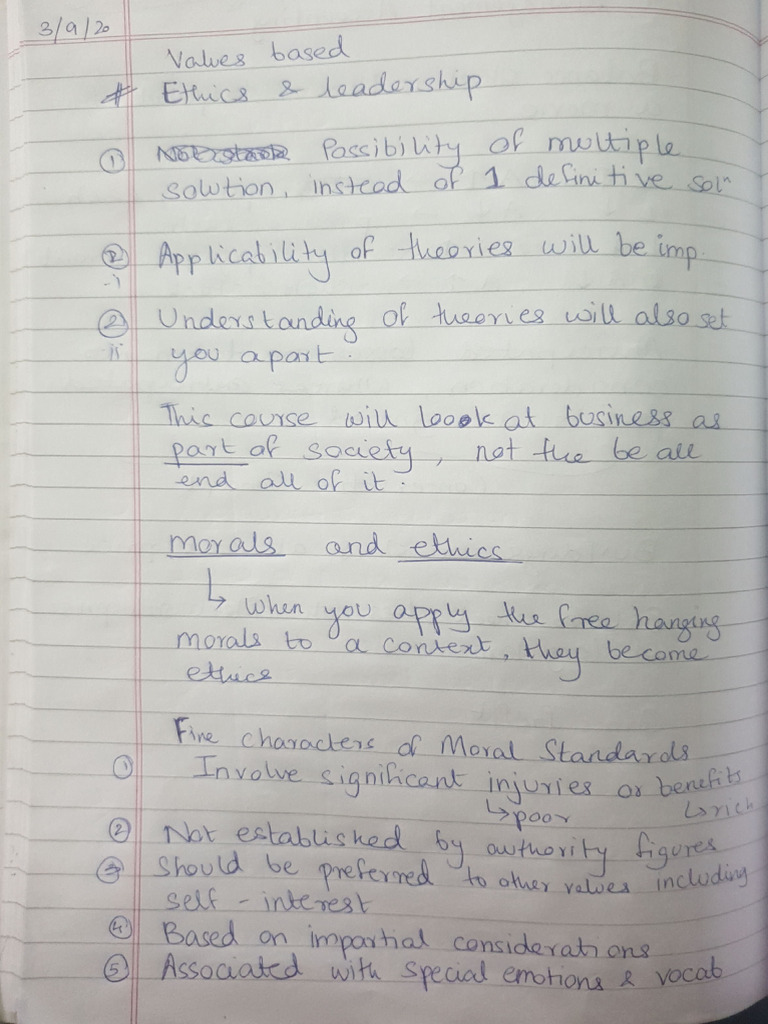 3/9/20
Values based
# Ethics & leadership
① Possibility of multiple
solution, instead of 1 definitive solⁿ
② Applicability of theories will be imp.
i
② Understanding of theories will also set
ii you apart.
This course will loook at business as
part of society, not the be all
end all of it.
morals and ethics
↳ when you apply the free hanging
morals to a context, they become
ethics
Five characters of Moral Standards
① Involve significant injuries or benefits
↳ poor ↳ rich
② Not established by authority figures
③ Should be preferred to other values including
self - interest
④ Based on impartial considerations
⑤ Associated with special emotions & vocab